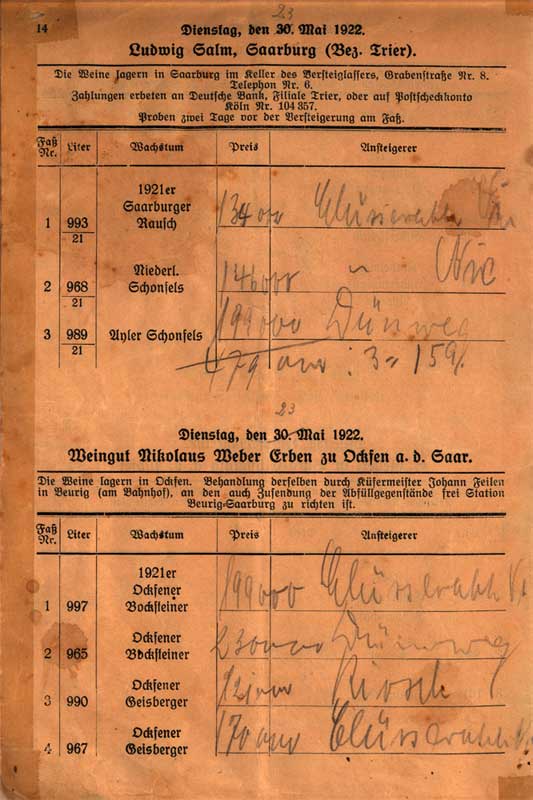 14
23
Dienstag, den 30. Mai 1922.
Ludwig Salm, Saarburg (Bez. Trier).
Die Weine lagern in Saarburg im Keller des Versteiglassers, Grabenstraße Nr. 8.
Telephon Nr. 6.
Zahlungen erbeten an Deutsche Bank, Filiale Trier, oder auf Postscheckkonto
Köln Nr. 104 357.
Proben zwei Tage vor der Versteigerung am Faß.
Faß Nr. Liter Wachstum Preis Ansteigerer
1921er
Saarburger
1 993/21 Rausch 134000
Niederl.
2 968/21 Schonfels 146000 " Nic
3 989/21 Ayler Schonfels 199000 Dünweg
479000 : 3 = 159
23
Dienstag, den 30. Mai 1922.
Weingut Nikolaus Weber Erben zu Ockfen a. d. Saar.
Die Weine lagern in Ockfen. Behandlung derselben durch Küfermeister Johann Feilen
in Beurig (am Bahnhof), an den auch Zusendung der Abfüllgegenstände frei Station
Beurig-Saarburg zu richten ist.
Faß Nr. Liter Wachstum Preis Ansteigerer
1921er
Ockfener
1 997 Bocksteiner 199000
Ockfener
2 965 Bocksteiner 230000 Dünweg
Ockfener
3 990 Geisberger
Ockfener
4 967 Geisberger 170000